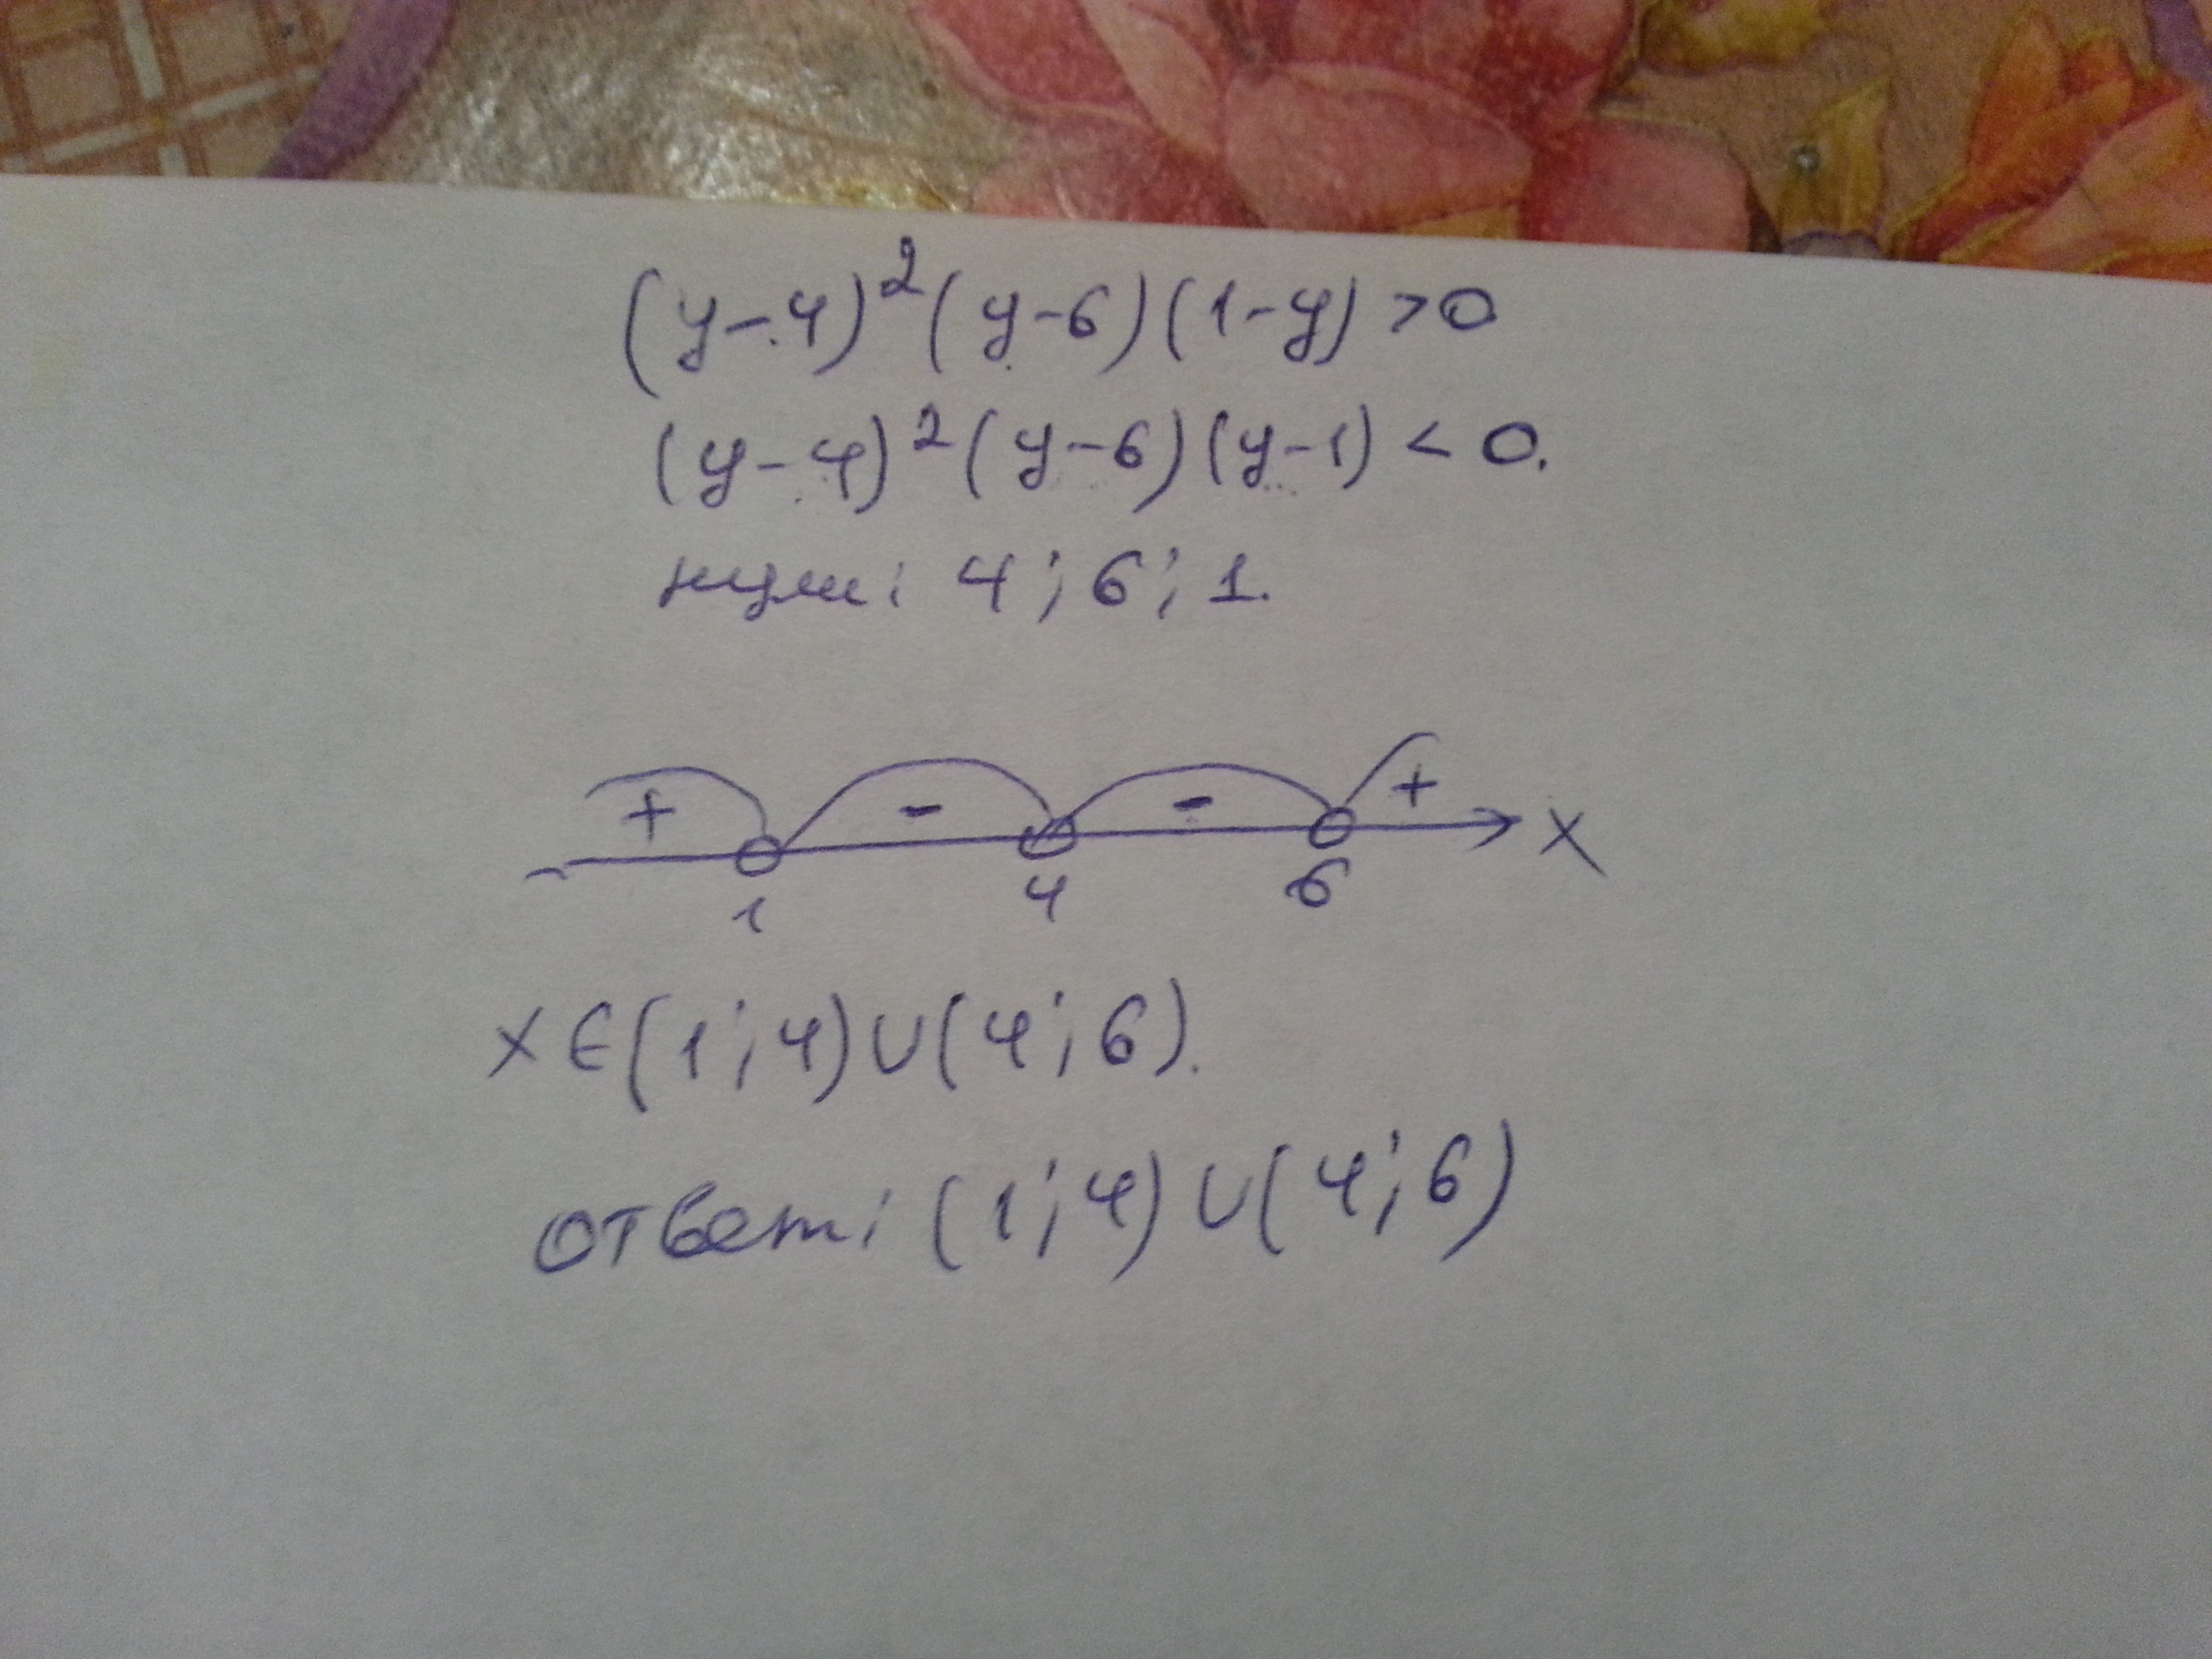 (y-4)²(y-6)(1-y)>0
(y-4)²(y-6)(y-1)<0.
нули: 4; 6; 1.
+ - - +
1 4 6 x
x∈(1;4)∪(4;6).
ответ: (1;4)∪(4;6)